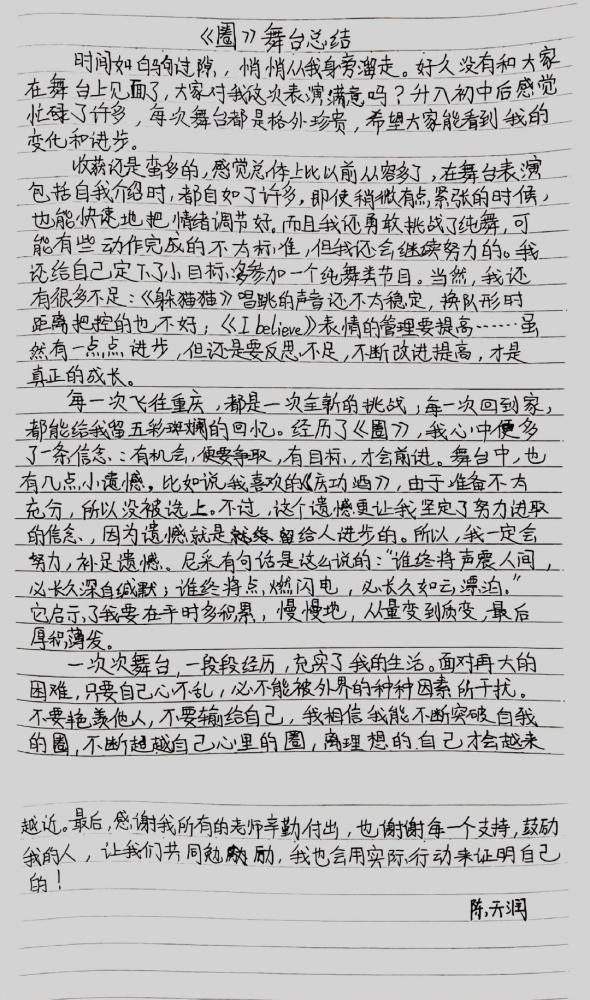 《圈》舞台总结
时间如白驹过隙，悄悄从我身旁溜走。好久没有和大家
在舞台上见面了，大家对我这次表演满意吗？升入初中后感觉
忙碌了许多，每次舞台都是格外珍贵，希望大家能看到我的
变化和进步。
收获还是蛮多的，感觉总体上比以前从容多了，在舞台表演
包括自我介绍时，都自如了许多，即使稍微有点紧张的时候，
也能快速地把情绪调节好。而且我还勇敢挑战了纯舞，可
能有些动作完成的不太标准，但我还会继续努力的。我
还给自己定下了小目标：多参加一个纯舞类节目。当然，我还
有很多不足：《躲猫猫》唱跳的声音还不太稳定，换队形时
距离把控的也不好；《I believe》表情的管理要提高……虽
然有一点点进步，但还是要反思不足，不断改进提高，才是
真正的成长。
每一次飞往重庆，都是一次全新的挑战；每一次回到家，
都能给我留五彩斑斓的回忆。经历了《圈》，我心中便多
了一条信念：有机会，便要争取，有目标，才会前进。舞台中，也
有几点小遗憾。比如说我喜欢的《庆功酒》，由于准备不太
充分，所以没被选上。不过，这个遗憾更让我坚定了努力进取
的信念，因为遗憾就是留给人进步的。所以，我一定会
努力，补足遗憾。尼采有句话是这么说的：“谁终将声震人间，
必长久深自缄默；谁终将点燃闪电，必长久如云漂泊。”
它启示了我要在平时多积累，慢慢地，从量变到质变，最后
厚积薄发。
一次次舞台，一段段经历，充实了我的生活。面对再大的
困难，只要自己心不乱，必不能被外界的种种因素所干扰。
不要艳羡他人，不要输给自己，我相信我能不断突破自我
的圈，不断超越自己心里的圈，离理想的自己才会越来
越近。最后，感谢我所有的老师辛勤付出，也谢谢每一个支持，鼓励
我的人，让我们共同勉励，我也会用实际行动来证明自己
的！
陈天润